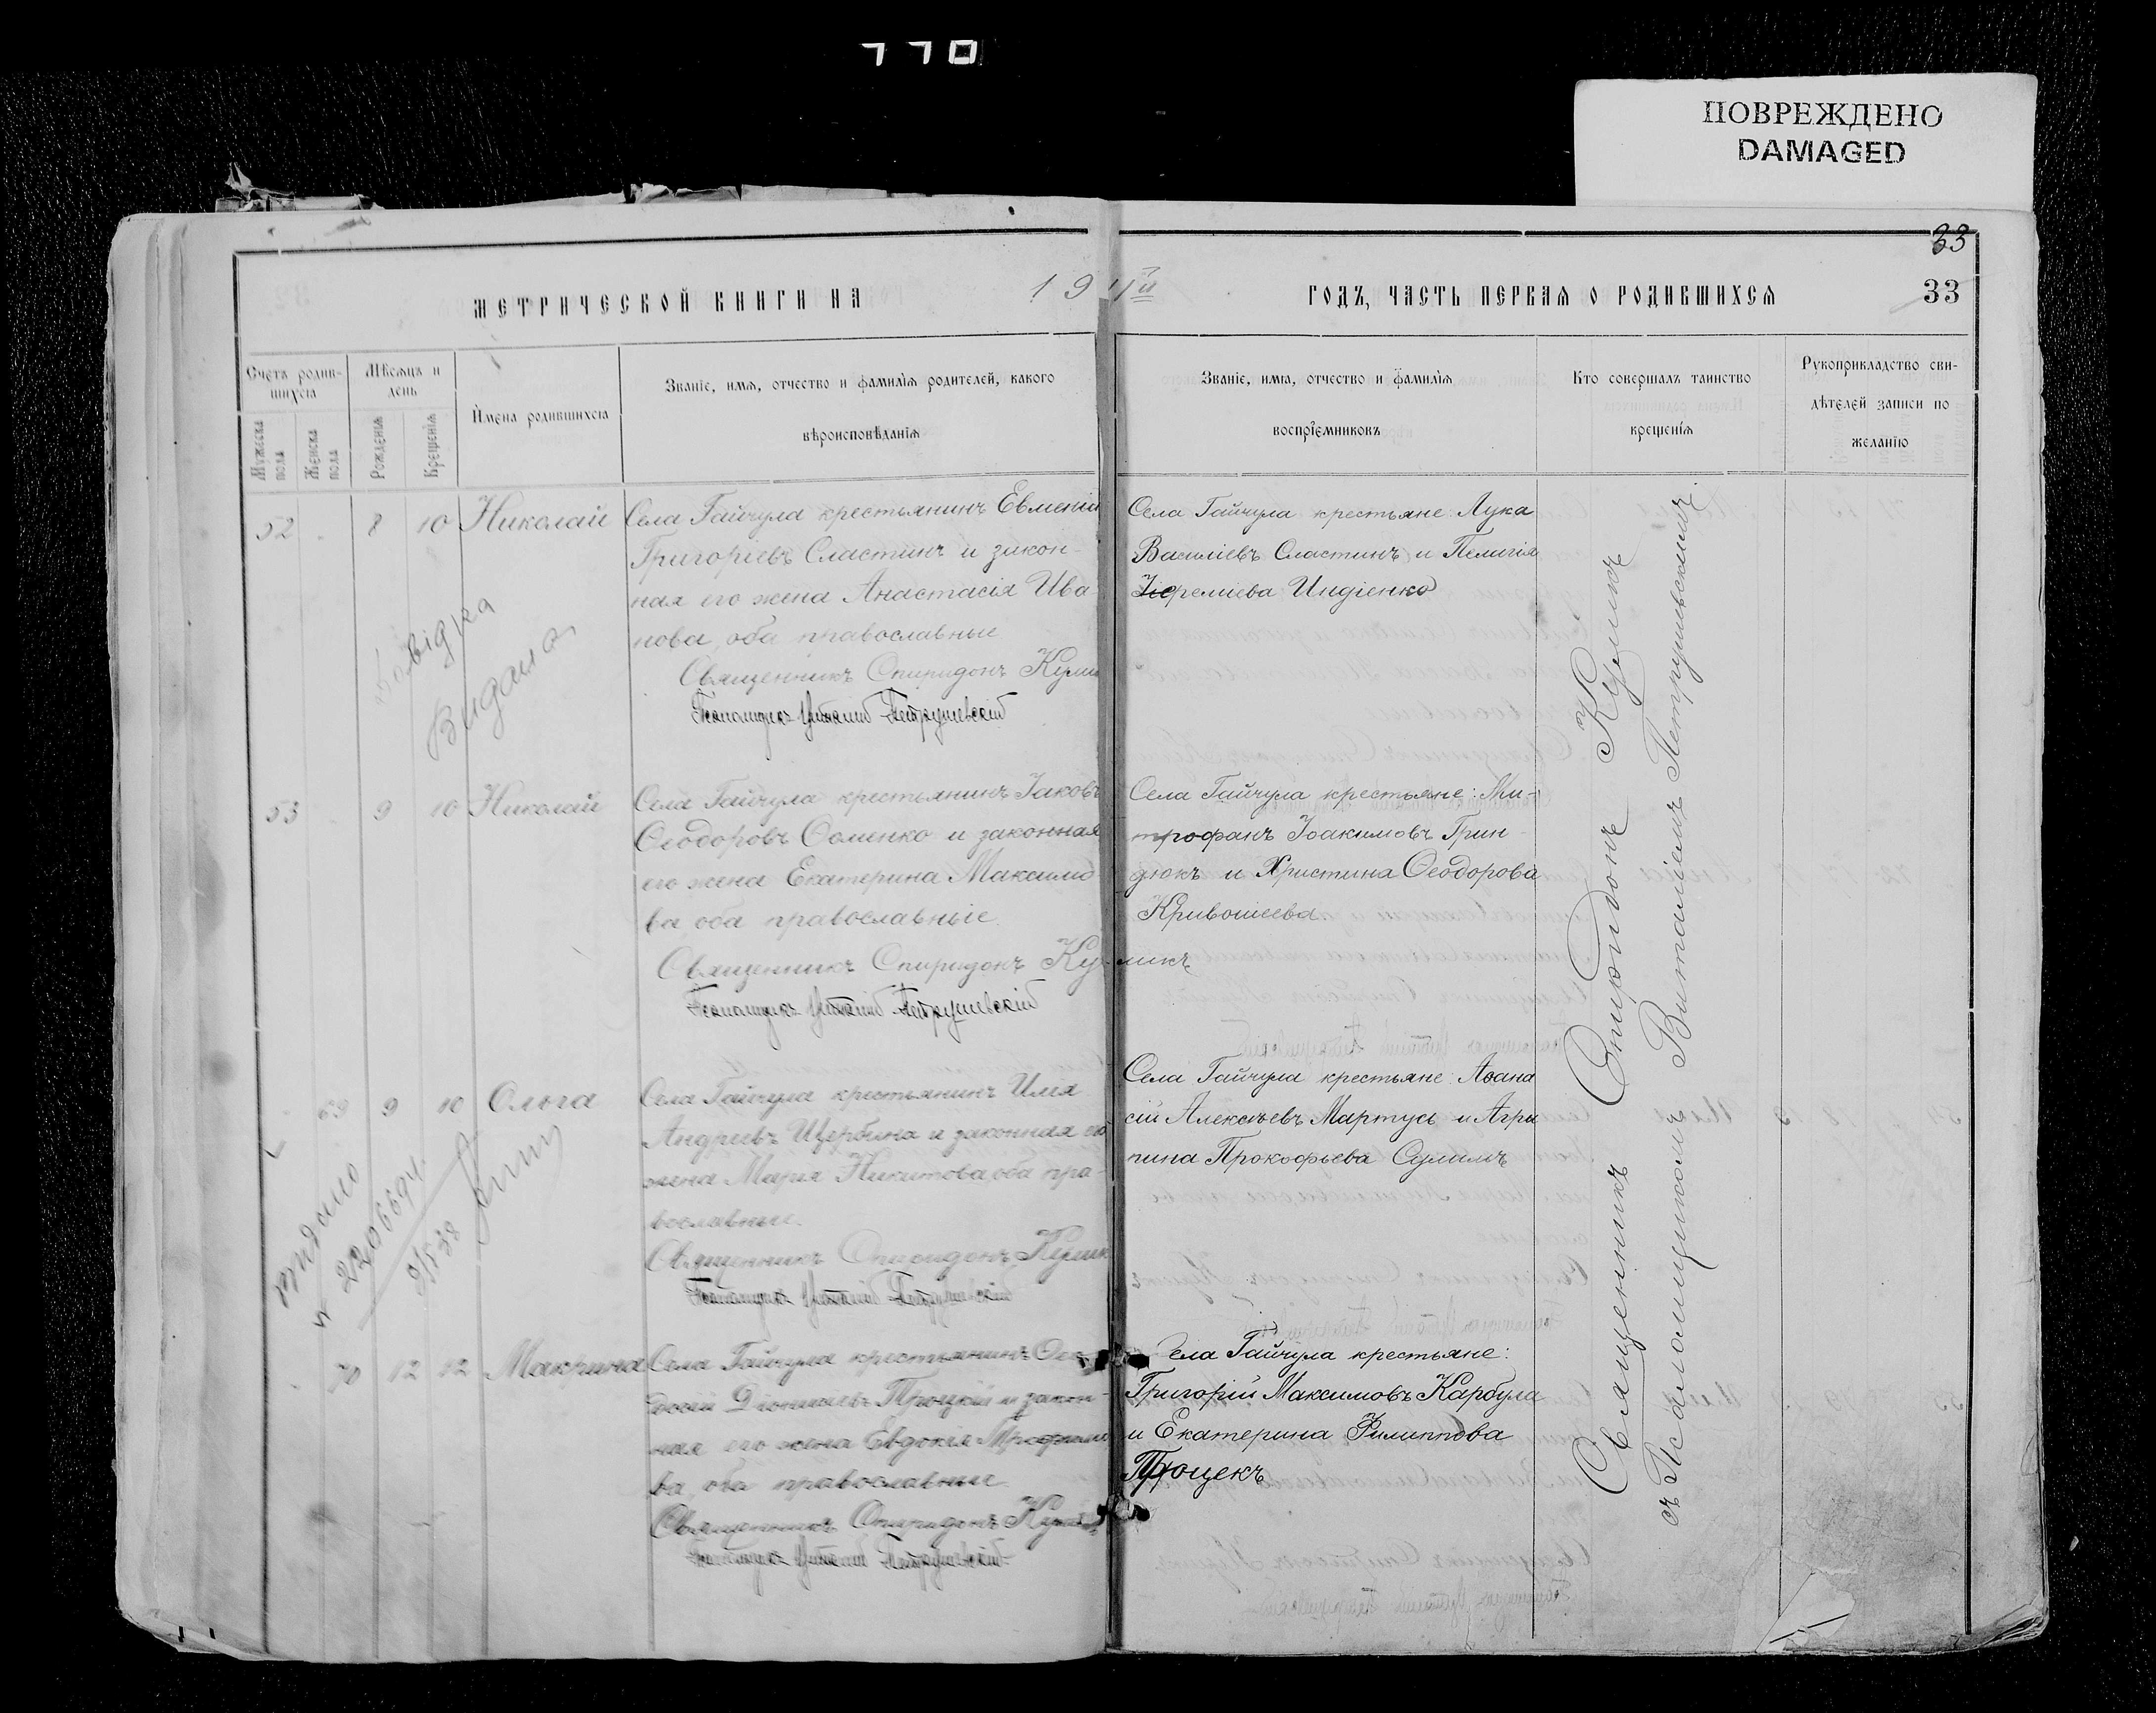 770
ПОВРЕЖДЕНО
DAMAGED
33
МЕТРИЧЕСКОЙ КНИГИ НА 1911й ГОДЪ, ЧАСТЬ ПЕРВАЯ О РОДИВШИХСЯ 33
Счетъ родившихся
Мужеска пола
Женска пола
Мѣсяцъ и день
Рожденія
Крещенія
Имена родившихся
Званіе, имя, отчество и фамилія родителей, какого
вѣроисповѣданія
Званіе, имя, отчество и фамилія
воспріемниковъ
Кто совершалъ таинство
крещенія
Рукоприкладство сви-
дѣтелей записи по
желанію
52 8 10 Николай
Села Гайчула крестьянинъ Евменій
Григоріевъ Сластинъ и закон-
ная его жена Анастасія Ива
нова, оба православные
Священникъ Спиридонъ Кулик
Псаломщикъ Виталій Петрушевскій
Села Гайчула крестьяне Лука
Василіевъ Сластинъ и Пелагія
Іереміева Индіенко
Довідка
Видана
53 9 10 Николай
Села Гайчула крестьянинъ Іаковъ
Ѳеодоровъ Ѳоменко и законная
его жена Екатерина Максимо
ва, оба православные.
Священникъ Спиридонъ Куликъ
Псаломщикъ Виталій Петрушевскій
Села Гайчула крестьяне: Ми-
трофанъ Іоакимовъ Грин-
дюкъ и Христина Ѳеодорова
Кривошеева.
69 9 10 Ольга
Села Гайчула крестьянинъ Илія
Андреевъ Щербина и законная его
жена Марія Никитова, оба пра-
вославные.
Священникъ Спиридонъ Кулик
Псаломщикъ Виталій Петрушевскій
Села Гайчула крестьяне: Аѳана
сій Алексѣевъ Мартусь и Агри
пина Прокофьева Сулимъ
видано
№ 2206694
9/5 38
70 12 12 Макрина
Села Гайчула крестьянинъ Ѳео-
досій Діонисіевъ Процкій и закон-
ная его жена Евдокія
ва, оба православные
Священникъ Спиридонъ Кулик
Псаломщикъ Виталій Петрушевскій
Села Гайчула крестьяне:
Григорій Максимовъ Карбула
и Екатерина Филиппова
Процекъ
Священникъ Спиридонъ Куликъ
съ Псаломщикомъ Виталіемъ Петрушевскимъ.